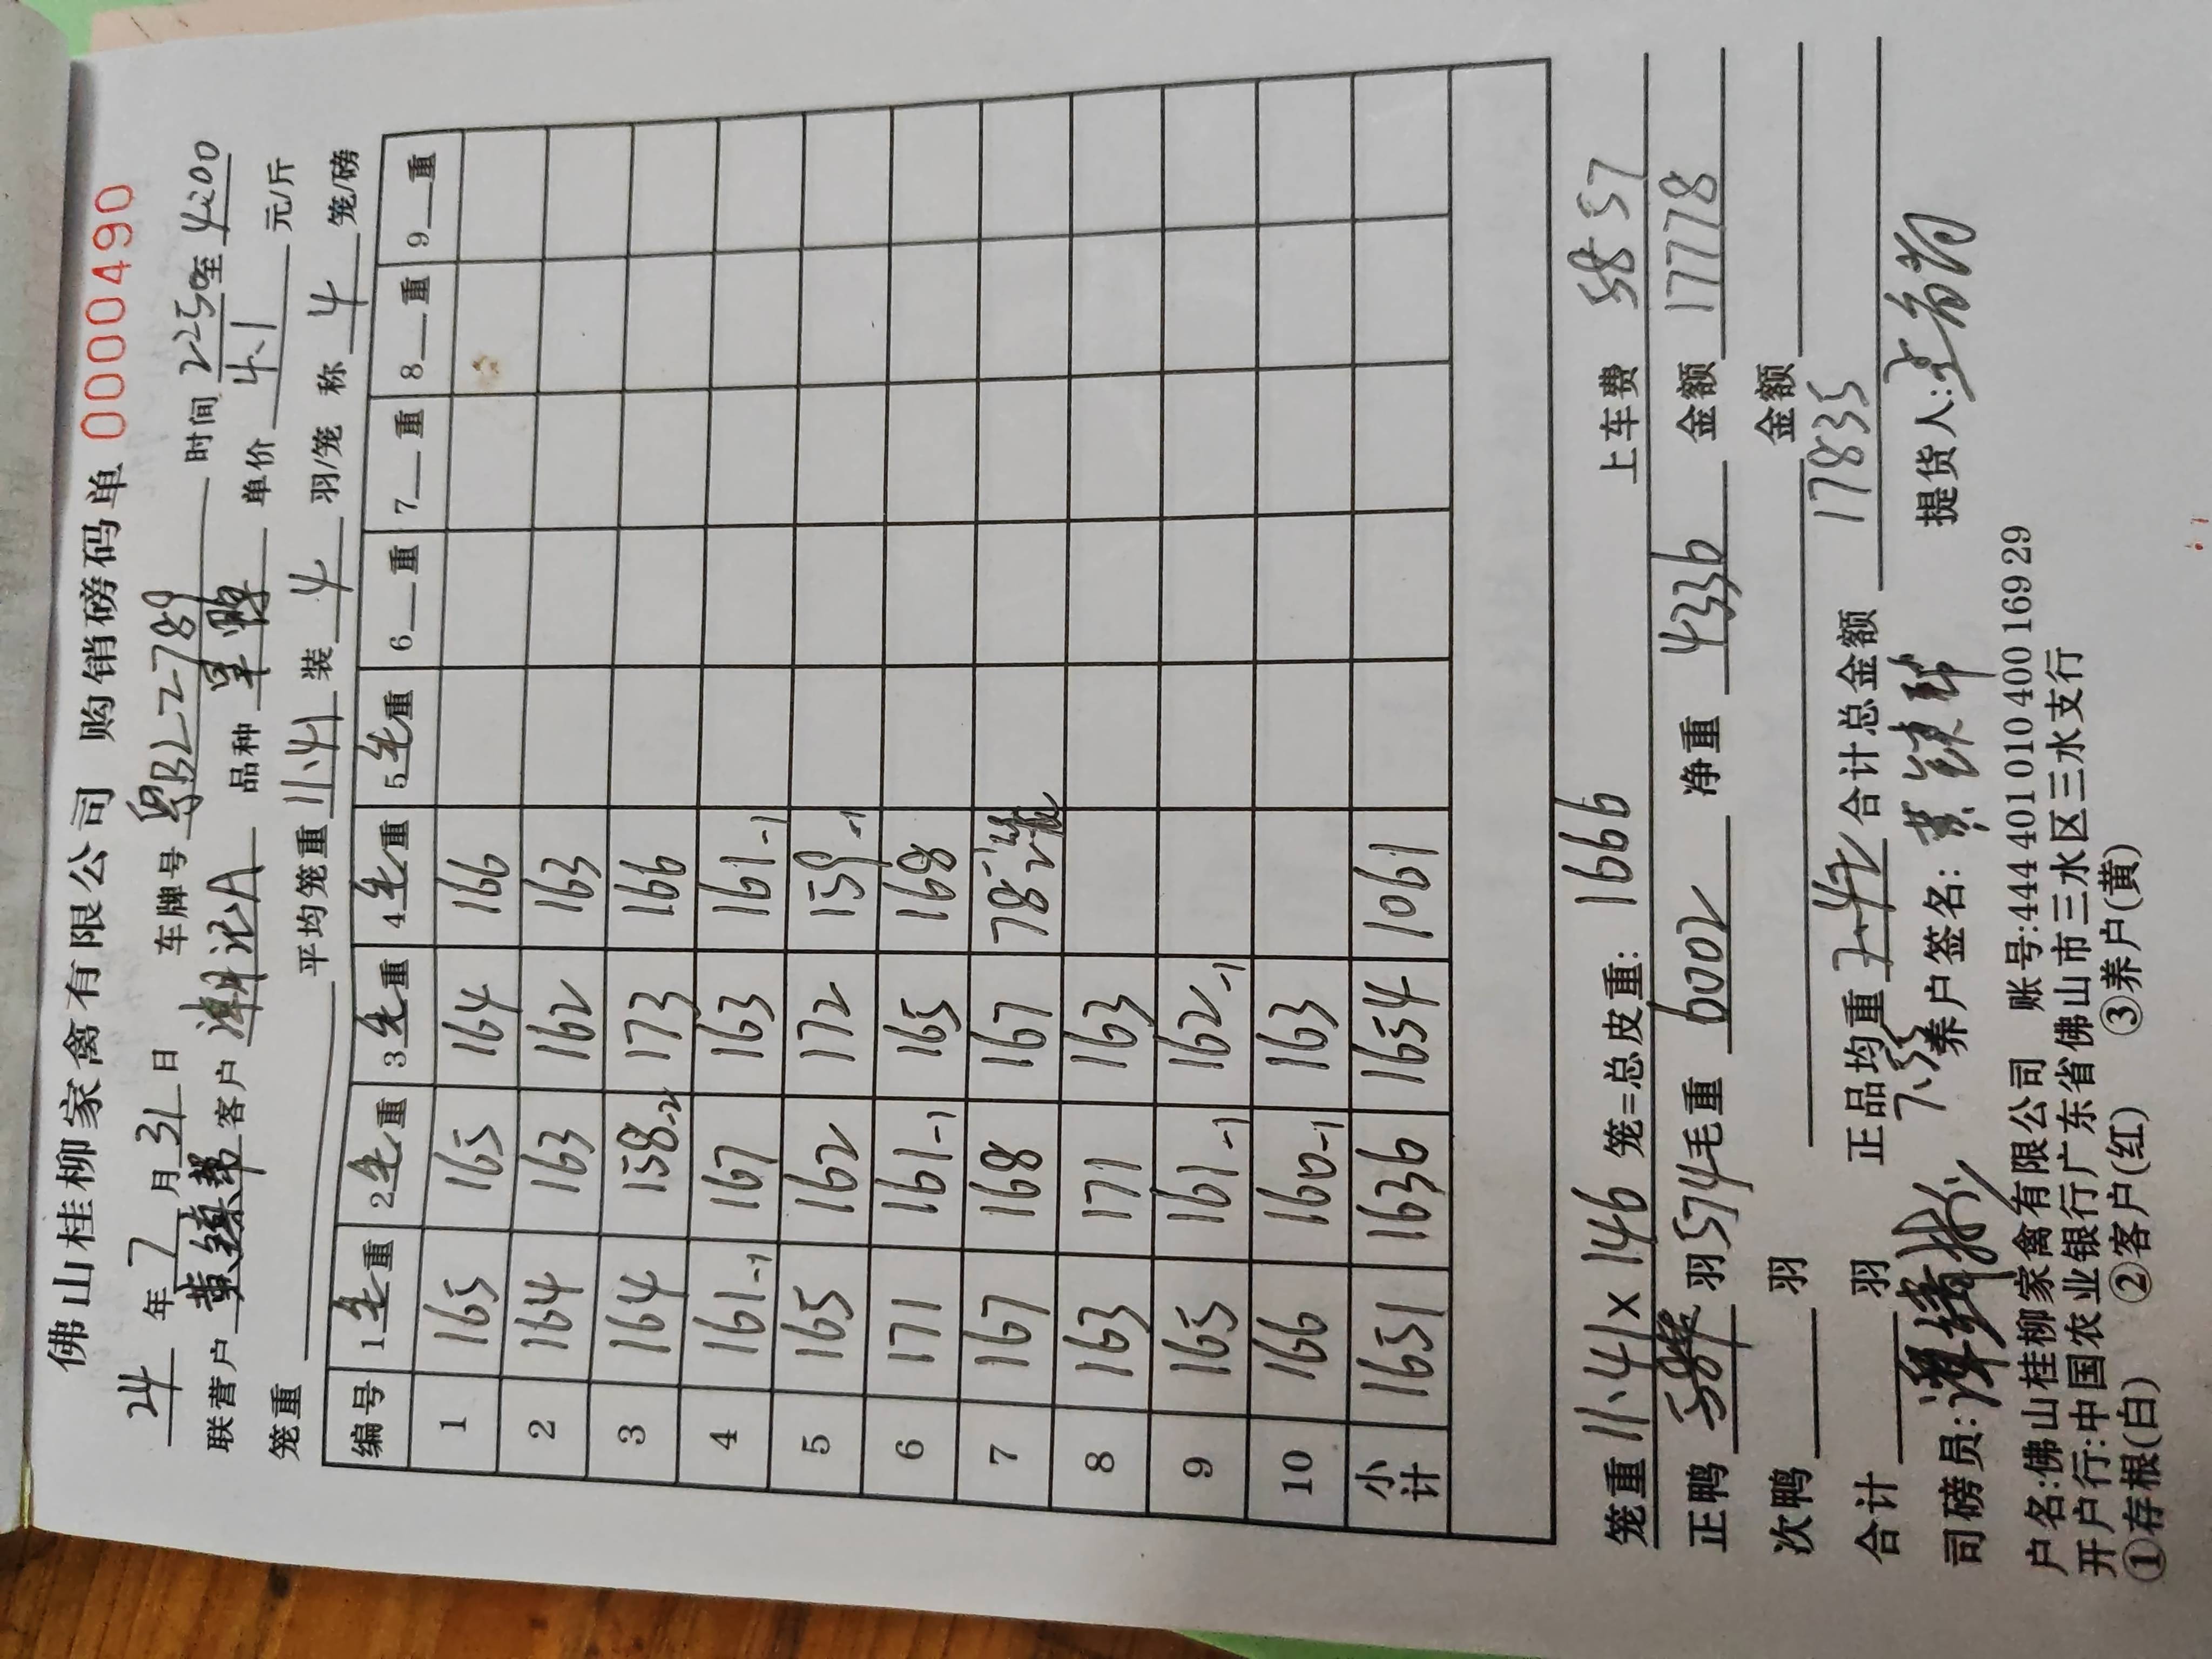 佛山桂柳家禽有限公司 购销磅码单 0000490
24 年 7 月 31 日 车牌号 粤BLZ-789 时间 2250至 4:00
联营户 黄镇帮 客户 潮记A 品种 旱鸭 单价 4.1 元/斤
笼重 平均笼重 11.41 装 4 羽/笼 称 4 笼/磅
编号 1毛重 2毛重 3毛重 4毛重 5毛重 6 重 7 重 8 重 9 重
1 165 165 164 166
2 164 163 162 163
3 164 158-2 173 166
4 161-1 167 163 161-1
5 165 162 172 159-1
6 171 161-1 165 168
7 167 168 167 78
8 163 171 163
9 165 161-1 162-1
10 166 160-1 163
小计 1651 1636 1654 1061
笼重 11.41 x 146 笼=总皮重: 1666 上车费 58 57
正鸭 羽 574 毛重 6002 净重 4336 金额 17778
次鸭 羽 金额
合计 羽 正品均重 7.55 合计总金额 17835
司磅员: 养户签名: 黄镇邦 提货人:
户名:佛山桂柳家禽有限公司 账号:444 401 010 400 169 29
开户行:中国农业银行广东省佛山市三水区三水支行
①存根(白) ②客户(红) ③养户(黄)